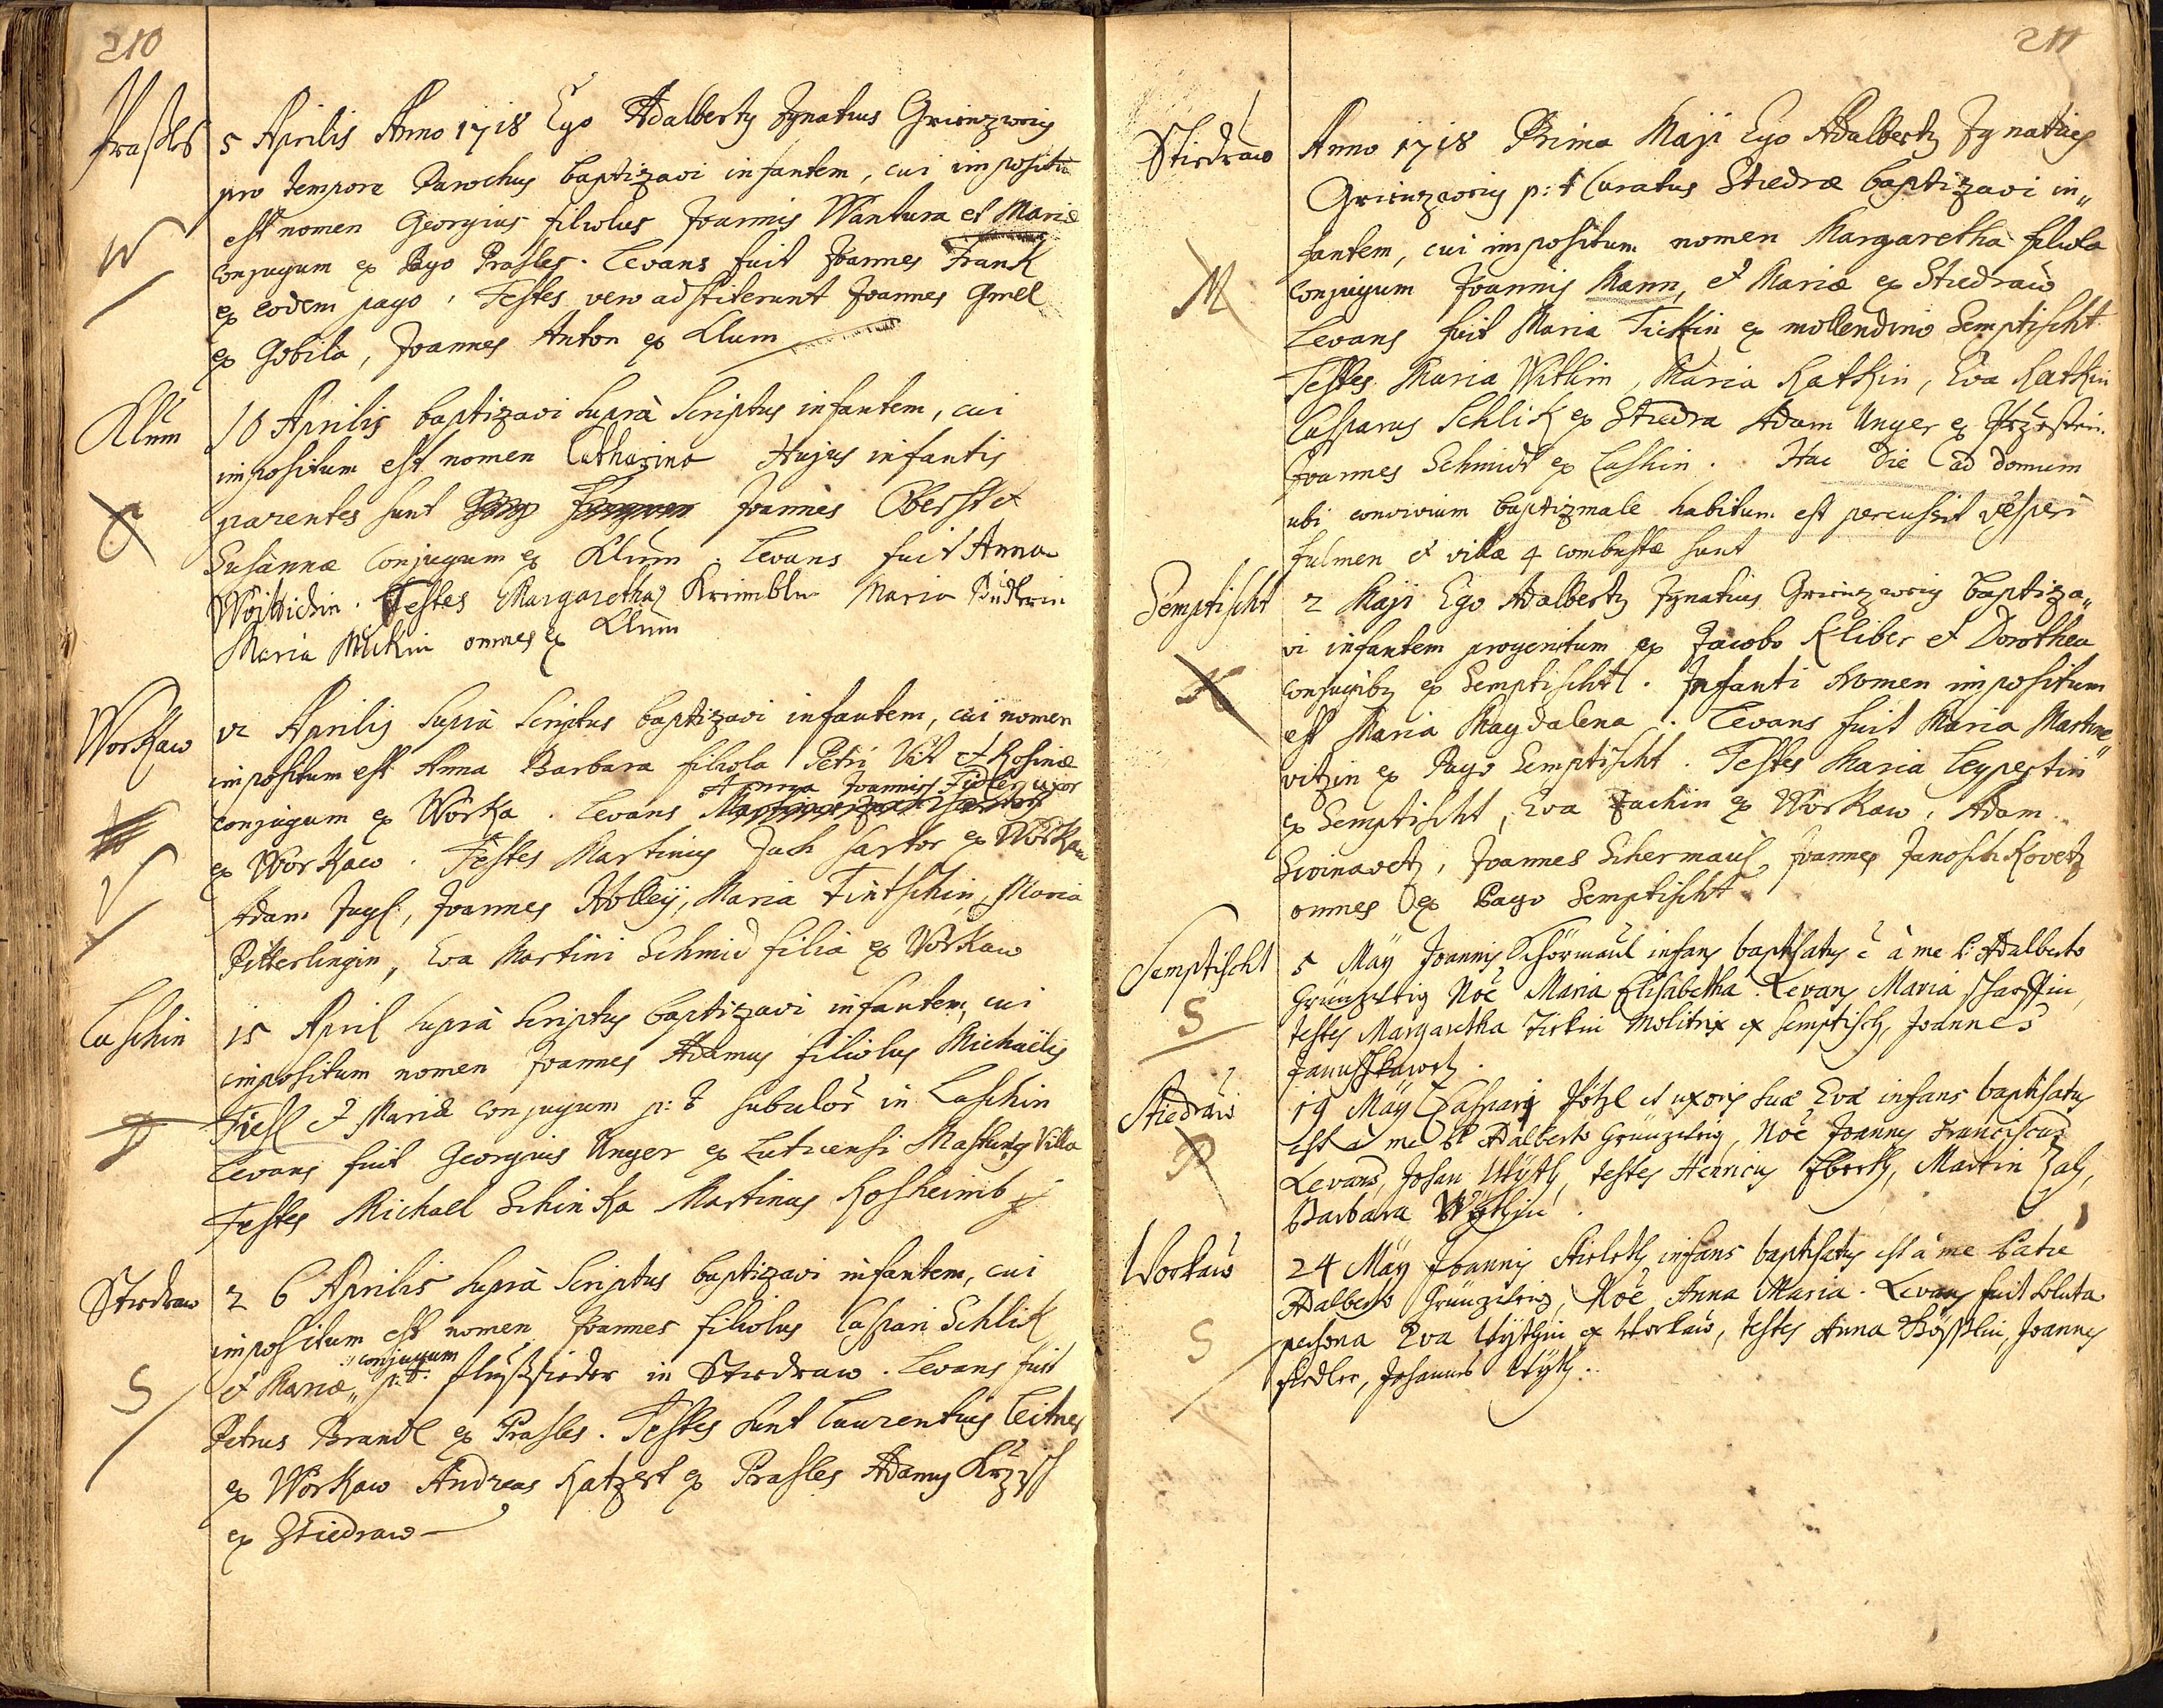 210
Prasles
5 Aprilis Anno 1718 Ego Adalbertg Ignatius Grienzweig
pro tempore Parochus baptizavi infantem, cui impositū
est nomen Georgius filiolus Joannis Wantura et Mariæ
W
conjugum ex Pago Prasles. Levans fuit Joannes Frank
ex eodem pago, Testes vero adstiterunt Joannes Gmel
ex Gobila, Joannes Anton ex Klum
Klum
10 Aprilis baptizavi suprà scriptus infantem, cui
impositum est nomen Catharina Hujus infantis
parentes sunt Joannes Oberst et
Susannæ Conjugum ex Klum. Levans fuit Anna
Testes Margaretha Maria
Maria omnes ex Klum
Workaw
12 Aprilis suprà scriptus baptizavi infantem, cui nomen
impositum est Anna Barbara filiola Petri Vit et Rosinæ
Anna Joannis Fidler uxor
conjugum ex Worka. Levans
ex Workaw. Testes Martinus Zach sartor ex Workaw
V
Adam Joannes Holleÿ, Maria Fintschin, Maria
Pitterlingin, Eva Martini Schmid filia ex Workaw
Luschin
15 April suprà scriptus baptizavi infantem, cui
impositum nomen Joannes Adamus filiolus Michaëlis
Fiesl et Mariæ conjugum p: t subulci in Luschin
Levans fuit Georgius Unger ex Luticensi Villa
Testes Michael Schinka Martinus Rosheimb
Stiedraw
26 Aprilis suprà scriptus baptizavi infantem, cui
impositum est nomen Joannes filiolus Caspari Schlik
conjugum
et Mariæ p: t: flusssieder in Stiedraw. Levans fuit
S
Petrus Brandl ex Prasles. Testes sunt Laurentius Leitner
ex Workaw Andreas Katzert ex Prasles Adamus
ex Stiedraw
211
Stiedraw
Anno 1718 Prima Maji Ego Adalbertg Ignatius
Grienzweig p: t Curatus Stiedræ baptizavi in„
fantem, cui impositum nomen Margaretha filiola
M
conjugum Joannis Mann, et Mariæ ex Stiedraw
Levans fuit Maria ex mollendino Semptischt
Testes Maria Within, Maria Katkin, Eva Katkin
Casparus Schlik ex Stiedra Adam Unger ex
Joannes Schmidt ex Luschin. Hac die ad domum
ubi convivium baptizmale habitum est percussit vesperi
fulmen et villæ 4 combustæ sunt
Semptischt
2 Maji Ego Adalbertg Ignatius Grienzweig baptiza„
vi infantem progenitum ex Jacobo Kliber et Dorothea
K
conjugibg ex Semptischt. Infanti nomen impositum
est Maria Magdalena. Levans fuit Maria Martine„
vitzin ex Pago Semptischt. Testes Maria Leypestin
ex Semptischt, Eva Zachin ex Workaw, Adam
Swinavetz, Joannes Schermaul, Joannes Janoschkovetz
omnes ex Pago Semptischt
Semptischt
5 Maÿ Joannis Schörmaul infans baptisatus ē à me P: Adalberto
Grünzweig Noē Maria Elisabetha. Levans Maria
S
testes Margaretha Molitrix ex Semptisch, Joannes
Stiedraw
19 Maÿ Caspari Pötzl et uxoris suæ Evæ infans baptisatus
P
est à me P Adalberto Grünzweig, Noē Joannes Franciscus
Levans, Johan testes Henricus Martin
Barbara
Workaw
24 Maÿ Joannis infans baptisatus est à me Patre
Adalberto Grünzweig, Noē Anna Maria. Levans fuit soluta
S
persona Eva ex Workaw, testes Anna Joannes
Fiedler, Johannes